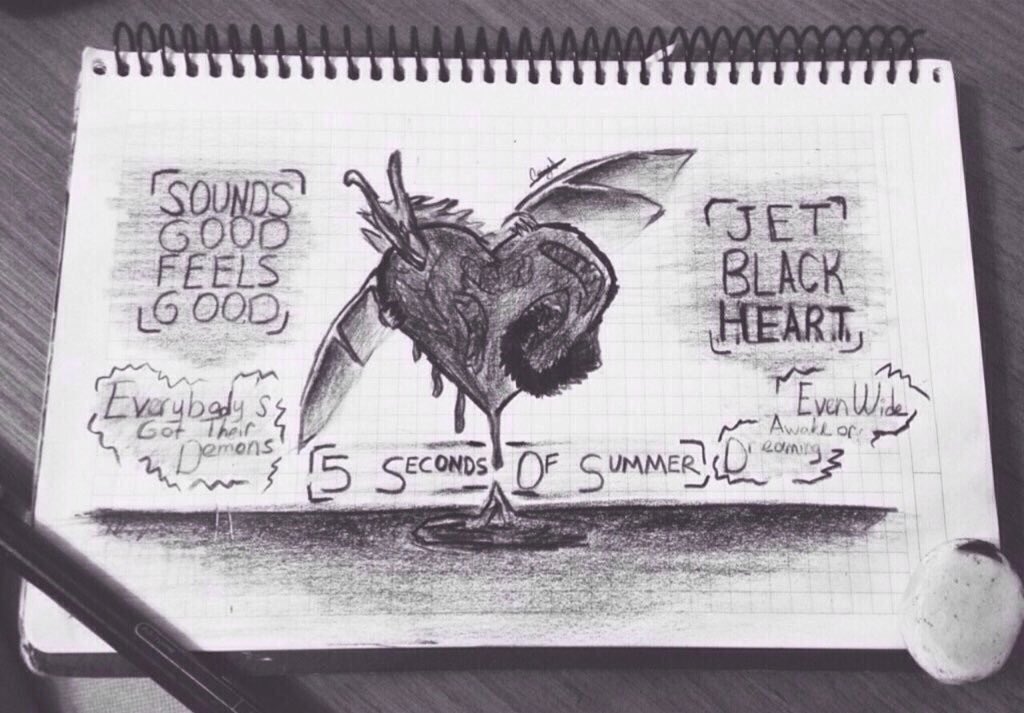 SOUNDS
GOOD
FEELS
GOOD
JET
BLACK
HEART
Everybody's
Got Their
Demons
Even Wide
Awake or
Dreaming
5 SECONDS OF SUMMER